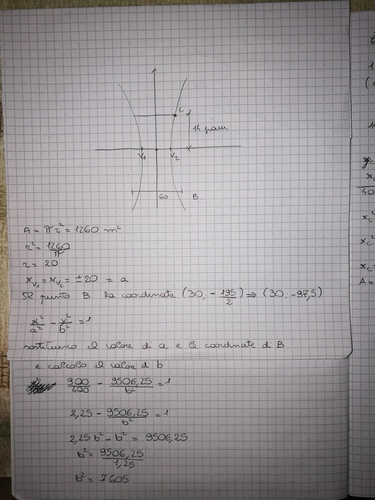 C
14 piani
V1 V2 x
60 B
A = πr² = 1260 m²
r² = 1260/π
r = 20
xV1 = xV2 = ±20 = a
Il punto B ha coordinate (30, -195/2) ⇒ (30, -97,5)
x²/a² - y²/b² = 1
sostituisco il valore di a e le coordinate di B
e calcolo il valore di b
900/400 - 9506,25/b² = 1
2,25 - 9506,25/b² = 1
2,25b² - b² = 9506,25
b² = 9506,25/1,25
b² = 7605